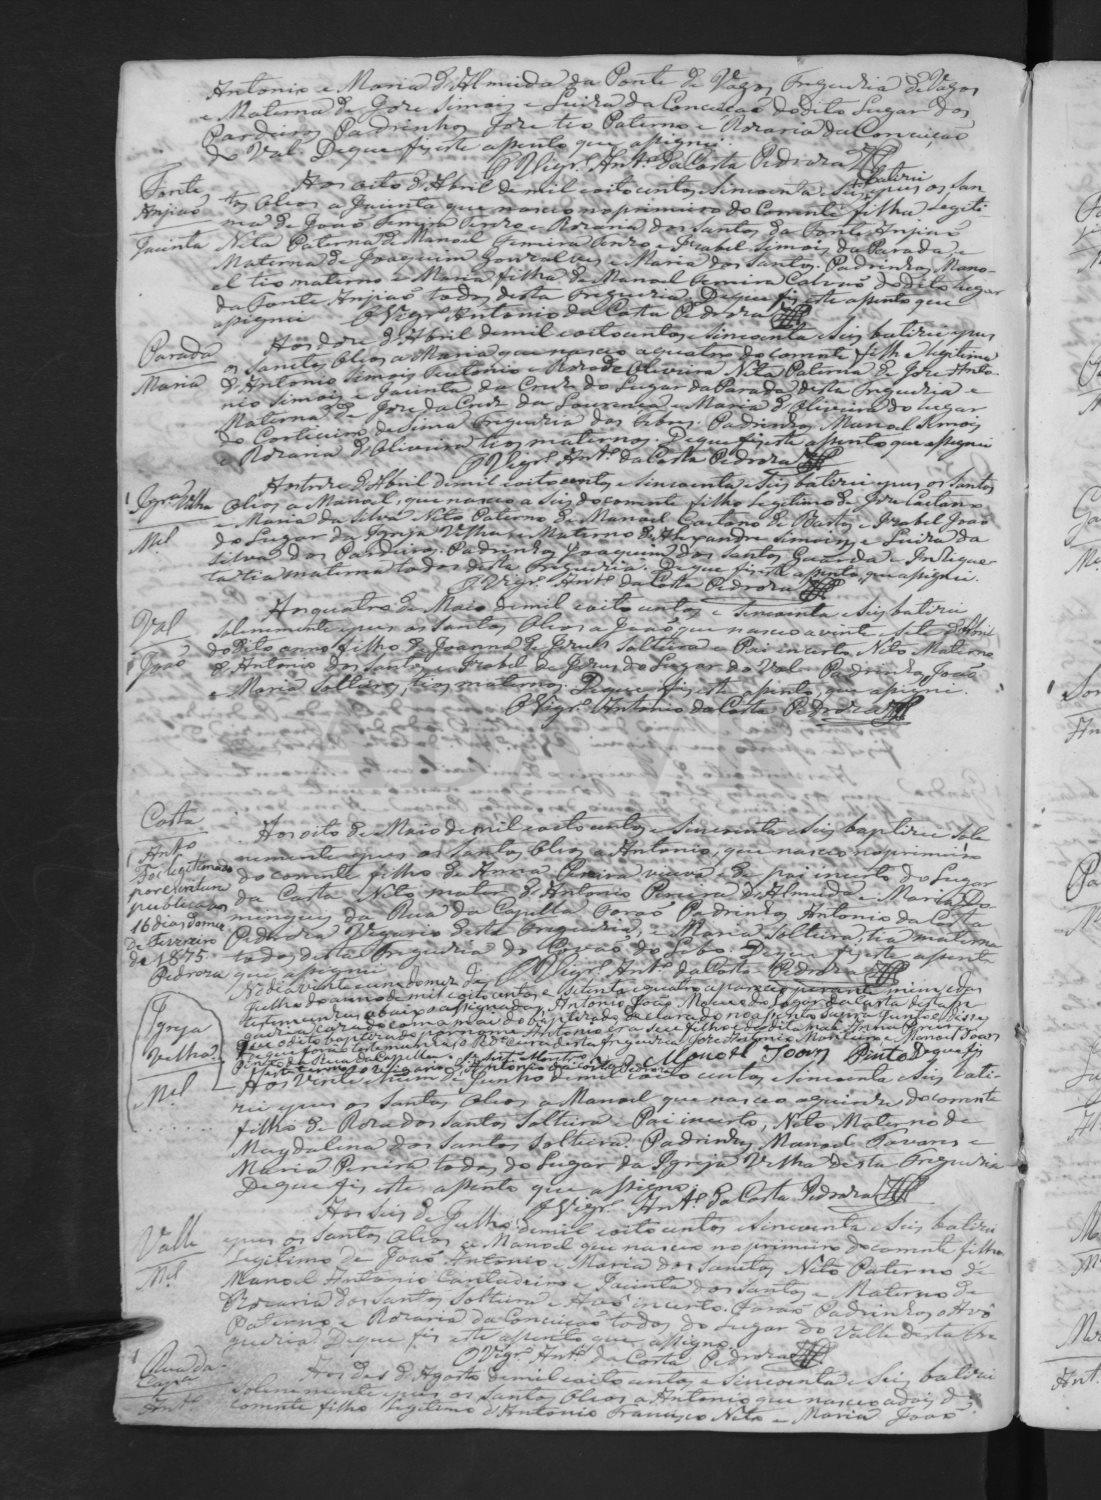 Antonio e Maria d'Almeida da Ponte de Vagos Freguezia de Vagos
e Materna de Jose Simois e Luiza da Conceiçaõ do dito Lugar dos
Pardeiros Padrinhos Jose tio Paterno e Rozaria da Conceiçaõ
do Val. De que fiz este aSento que aSignei.
O Vigr.º Ant.º da Costa Pedroza
Fonte
Anjiaõ
Jacinta
Aos oito d'Abril de mil eoito centos e Sincoenta e Seis batizei e pus os San
tos Oleos a Jacinta que nasceo no primeiro do Corrente filha Legiti-
ma de Joaõ Ferreira e Rozaria dos Santos da Fonte Anjiaõ
Neta Paterna de Manoel Ferreira e Izabel Simois da Parada e
Materna de Joaquim Gonzalves e Maria dos Santos. Padrinhos Mano-
el tio materno e Maria filha de Manoel Ferreira do dito lugar
da Fonte Anjiaõ todos desta Freguezia. De que fiz este aSento que
aSignei O Vigr.º Antonio da Costa Pedroza
Parada
Maria
Aos doze d'Abril de mil eoito centos e Sincoenta e Seis batizei e pus
os Santos Oleos a Maria que nasceo a quatro do corrente filha legitima
d'Antonio Simois e Roza de Oliveira Neta Paterna de Jose Anto-
nio Simois e Jacinta da Cruz do Lugar da Parada desta Freguezia e
Materna de Jose da Cruz da Lourenca e Maria d'Oliveira do lugar
do Corticeiro de Sima Freguezia das Febres. Padrinhos Manoel Simois
e Rozaria d'Oliveira tios maternos. De que fiz este aSento que aSignei
O Vigr.º Ant.º da Costa Pedroza
Igr.ª Velha
M.el
Aos treze d'Abril de mil eoito centos e Sincoenta e Seis batizei e pus os Santos
Oleos a Manoel, que nasceo a Seis do corrente filho Legitimo de Jose Caetano
e Maria da Silva Neto Paterno de Manoel Caetano de Bastos e Izabel Joaõ
do Lugar da Igreja Velha e Materno d'Alexandre Simois e Luiza da
Silva dos Pardeiros. Padrinhos Joaquim dos Santos Guarda e
tia materna todos desta Freguezia. De que fiz este aSento, que aSignei.
O Vigr.º Ant.º da Costa Pedroza
Val
Joaõ
Aos quatro de Maio de mil eoito centos e Sincoenta e Seis batizei
Solenemente e pus os Santos Oleos a Joaõ, que nasceo a vinte e Sete d'Abril
do dito anno filho de Joanna de Jezus Solteira e Pai incerto Neto Materno
d'Antonio dos Santos e Izabel de Jezus do Lugar do Val. Padrinhos Joaõ
e Maria Solteiros, tios maternos. De que fiz este aSento, que aSignei.
O Vigr.º Antonio da Costa Pedroza
Costa
Ant.º
Foi legitimado
por escritura
publica aos
16 dias do mez
de Fevereiro
de 1875
Pedroza
Aos oito de Maio de mil eoito centos e Sincoenta e Seis baptizei Sole
nemente e pus os Santos Oleos a Antonio, que nasceo no primeiro
do corrente filho de Anna Pereira viuva e de pai incerto do Lugar
da Costa Neto mater. d'Antonio Pereira d'Almeida e Maria Do-
mingues da Rua da Capella Foraõ Padrinhos Antonio da Costa
Pedroza Vigario desta Freguezia, e Maria Solteira, tia materna
todos desta Freguezia do Covaõ do Lobo. De que fiz este aSento
que aSignei O Vigr.º Ant.º da Costa Pedroza
No dia vinte e um do mez de
Julho do anno de mil eoito centos e Setenta e quatro apareceo perante mim, e das
testemunhas abaixo aSignadas, Antonio Joaõ do lugar da Costa desta fre
guezia, cazado com a mai do baptizado declarado no aSento Supra Junto e Disse
que o dito baptizado por nome Antonio era Seu filho e da dita mai Anna Pereira
De que foraõ testemunhas o R.do Cura desta freguezia Jose Antonio Monteiro e Manoel Joaõ
Pinto da Rua da Capella. Manoel Joam Pinto De que fiz
este termo O Vigario Antonio da Costa Pedroza
Igreja
Velha
M.el
Aos vinte e hum de Junho de mil eoito centos e Sincoenta e Seis bati-
zei e pus os Santos Oleos a Manoel que nasceo a quinze do corrente
filho de Roza dos Santos Solteira e Pai incerto, Neto Materno de
Magdalena dos Santos Solteira. Padrinhos Manoel Tavares e
Maria Pereira todos do Lugar da Igreja Velha desta Freguezia
De que fiz este aSento que aSigno.
O Vigr.º Ant.º da Costa Pedroza
Valle
M.el
Aos Seis de Julho de mil eoito centos e Sincoenta e Seis batizei
e pus os Santos Oleos a Manoel que nasceo no primeiro do corrente filho
Legitimo de Joaõ Antonio e Maria dos Santos Neto Paterno de
Manoel Antonio Cantadeiro e Jacinta dos Santos e Materno de
Rozaria dos Santos Solteira e Avô incerto. Foraõ Padrinhos o Avô
Paterno e Rozaria da Conceiçaõ todos do Lugar do Valle desta Fre
guezia. De que fiz este aSento que aSigno.
O Vigr.º Ant.º da Costa Pedroza
Rua da
Capª
Ant.º
Aos dez d'Agosto de mil eoito centos e Sincoenta e Seis batizei
Solenemente e pus os Santos Oleos a Antonio que nasceo a dois do
corrente filho legitimo d'Antonio Francisco Neto e Maria Joaõ